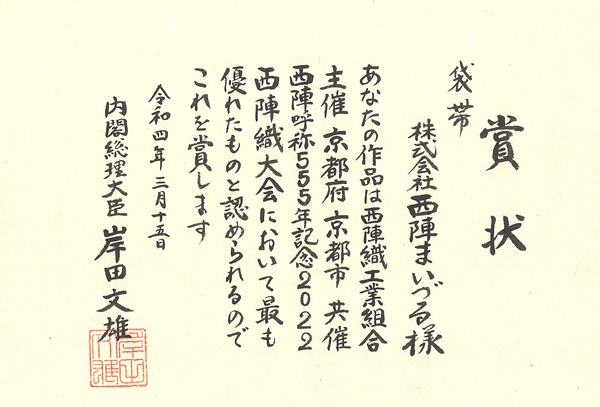 賞状
袋帯
株式会社西陣まいづる様
あなたの作品は西陣織工業組合
主催 京都府 京都市 共催
西陣呼称555年記念2022
西陣織大会において最も
優れたものと認められるので
これを賞します
令和四年三月十五日
内閣総理大臣 岸田文雄